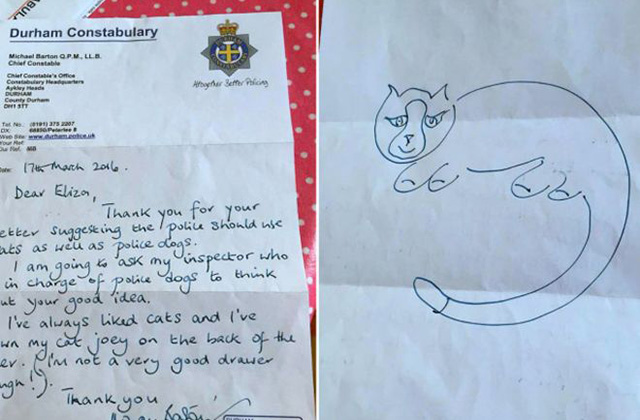 Durham Constabulary
Michael Barton Q.P.M., LL.B.
Chief Constable
Chief Constable's Office
Constabulary Headquarters
Aykley Heads
DURHAM
County Durham
DH1 5TT
Altogether Better Policing
Tel No.: (0191) 375 2207
DX: 68850/Peterlee
Web Site: www.durham.police.uk
Your Ref:
Our Ref.
Date: 17th March 2016.
Dear Eliza,
Thank you for your
etter suggesting the police should use
ats as well as police dogs.
I am going to ask my inspector who
in charge of police dogs to think
ut your good idea.
I've always liked cats and I've
wn my cat joey on the back of the
er. (I'm not a very good drawer
ugh!).
Thank you